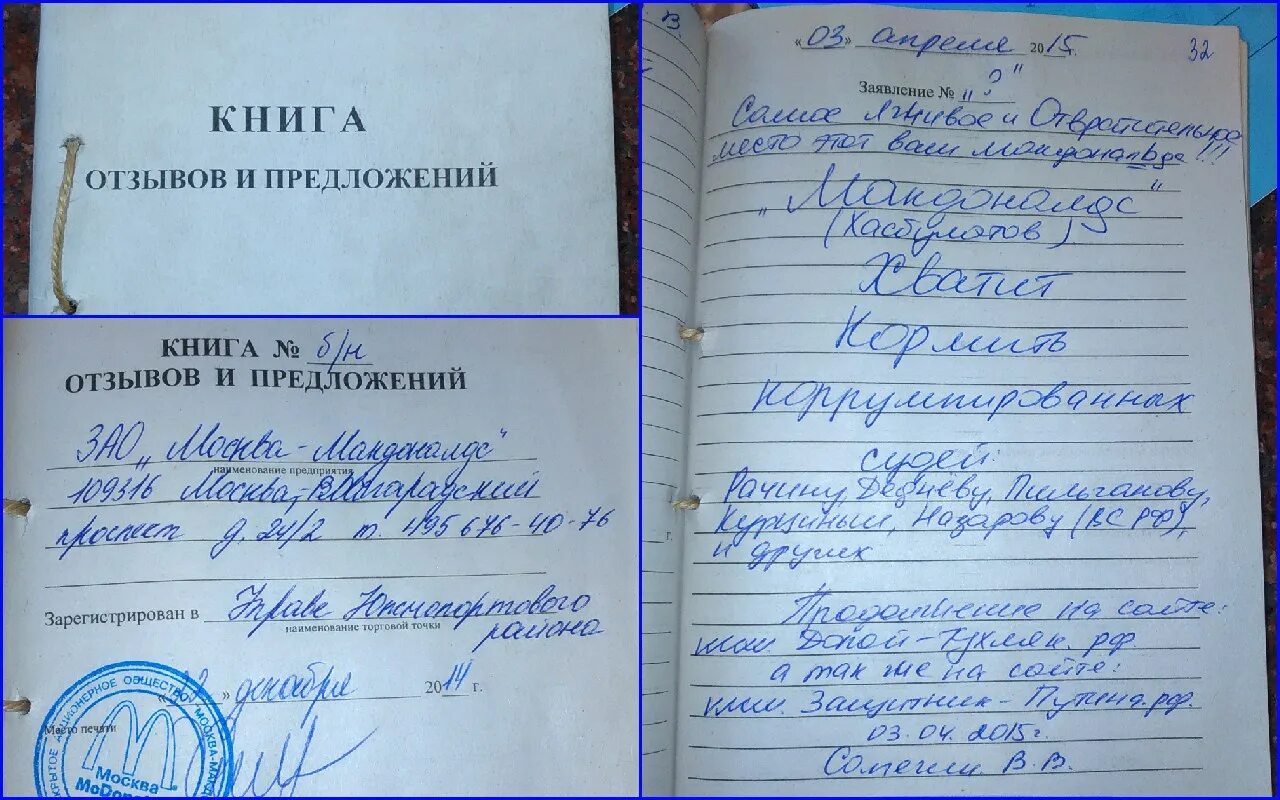 КНИГА
ОТЗЫВОВ И ПРЕДЛОЖЕНИЙ
КНИГА № б/н
ОТЗЫВОВ И ПРЕДЛОЖЕНИЙ
ЗАО „Москва-Макдоналдс"
наименование предприятия
109316 Москва, Волгоградский
проспект д. 24/2 т. 495 676-40-76
Зарегистрирован в Управе Южнопортового
наименование торговой точки
района
" декабря 2014 г.
Место печати
МОСКВА
McDon
В.
«03» апреля 2015 г.
32
Заявление № „?"
Самое лживое и Отвратительное
место этот ваш макдональдс !!!
„Макдоналдс"
(Хасбулатов)
Хватит
Кормить
коррумпированных
судей:
Рачину, Дебневу, Пильганову,
Курциньш, Назарову (ВС РФ),
и других
Продолжение на сайте:
Долой-Тухляк.рф.
а так же на сайте:
Защитник-Путина.рф.
03.04.2015г.
В.В.